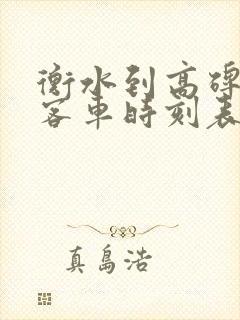 衡水到高碑
客车时刻表
真島浩